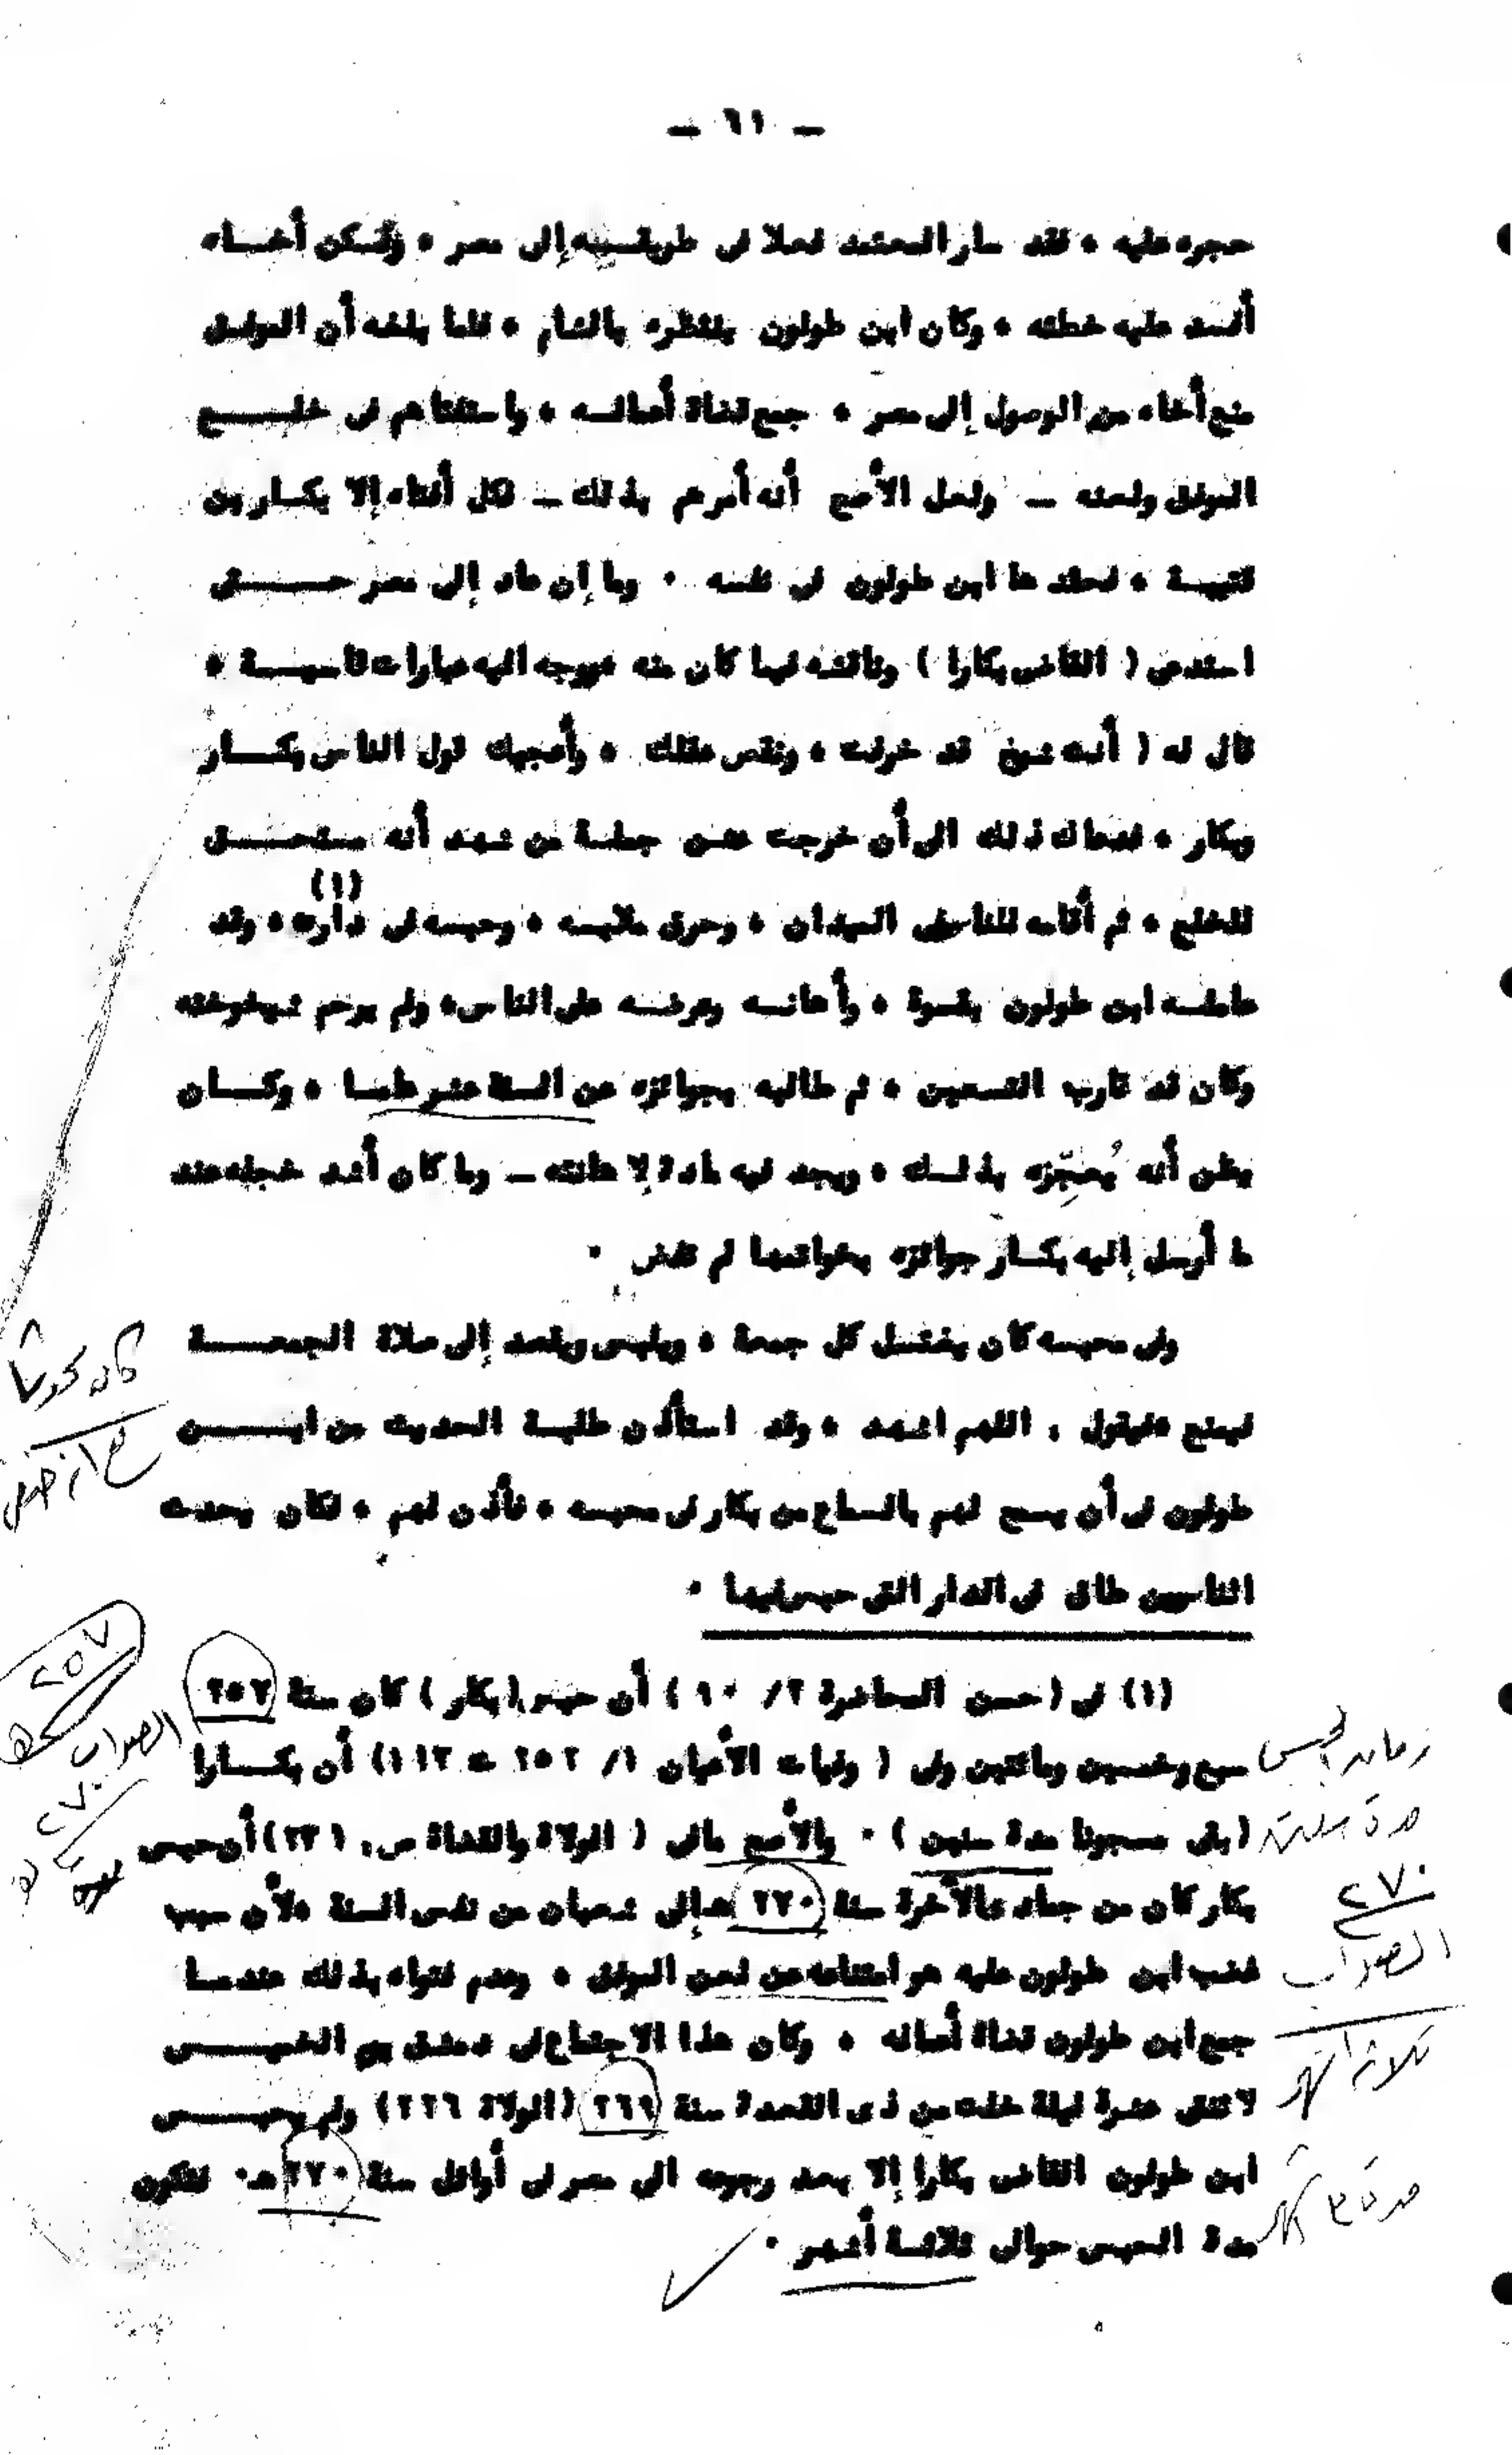 — ٦١ —
حجره عليه ، فقد سار المعتمد فعلا فى طريقــه إلى مصر ، ولـكن أخــاه
أفسد عليه خطته ، وكان ابن طولون ينتظره بالشام ، فلما بلغه أن الموفــق
منع أخاه من الوصول إلى مصر ، جمع قضاة أعمالــه ، واستفتاهم فى خلــــع
الموفق ولعنه — ولعل الأصح أنه أمرهم بذلك — فكل أفتاه إلا بكــار بن
قتيبــة ، فحقد ها ابن طولون فى نفسه . وما إن عاد إلى مصر حـــــتى
استدعى ( القاضى بكارا ) وناقشه فيما كان منه فوجه اليه عبارات قاسيــــة ،
قال له ( أنت شيخ قد خرفت ، ونقص عقلك ، وأعجبك قول الناس بكــــار
وبكار ، فدعاك ذلك الى أن خرجت عــن جملــة من شهد أنه مستحــــق
للخلع ، ثم أقامه للناس فى الميدان ، وحرق ملابسه ، وحبسه فى داره (١) ، وقد
عاملــه ابن طولون بقسوة ، وأهانــه وعرضــه على الناس ، ولم يرحم شيخوخته
وكان قد قارب التسعين ، ثم طالبه بجوائزه عن الستة عشر عامــا ، وكــــان
يظن أنه يُعجِّزه بذلــك ، ويجد فيه مادة لإهانته — وما كان أشد خجله عند
ما أرسل إليه بكــار جوائزه بخواتمها لم تفض .
وفى محبسه كان يغتسل كل جمعة ، ويلبس ويقصد إلى صلاة الجمعــــة
فيمنع فيقول : اللهم اشهد ، وقد استأذن طلبــة الحديث من ابـــــن
طولون فى أن يسمح لهم بالسماع من بكار فى محبسه ، فأذن لهم ، فكان يحدث
الناس من طاق فى الدار التى حبس فيها .
(١) فى (حسن المحاضرة ٢/ ٩٠) أن حبس (بكار) كان سنة ٢٥٧
سبع وخمسين ومائتين وفى ( وفيات الأعيان ١/ ٢٥٢ ت ١١٣) أن بكــــارا
(بقى مسجونا مدة سنين) . والأصح مافى ( الولاة والقضاة ص: ٢٣١) أن حبس
بكار كان من جمادى الآخرة سنة ٢٧٠ هـ إلى شعبان من نفس السنة ، لأن سبب
غضب ابن طولون عليه هو امتناعه عن لعن الموفق ، وعدم فتواه بذلك عندمــا
جمع ابن طولون قضاة أعماله ، وكان هذا الاجتماع فى دمشق يوم الخميــــس
لاثنتى عشرة ليلة خلت من ذى القعدة سنة ٢٦٩ (الولاة ٢٢٦) ولم يحبـــــس
ابن طولون القاضى بكارا إلا بعد رجوعه الى مصر فى أوائل سنة ٢٧٠ هـ . فتكون
مدة الحبس حوالى ثلاثــة أشهر .
٢٥٧
الصواب
٢٧٠
زمان الحبس
٢٧٠
الصواب
ثلاثة أشهر
مدة ٣ أشهر